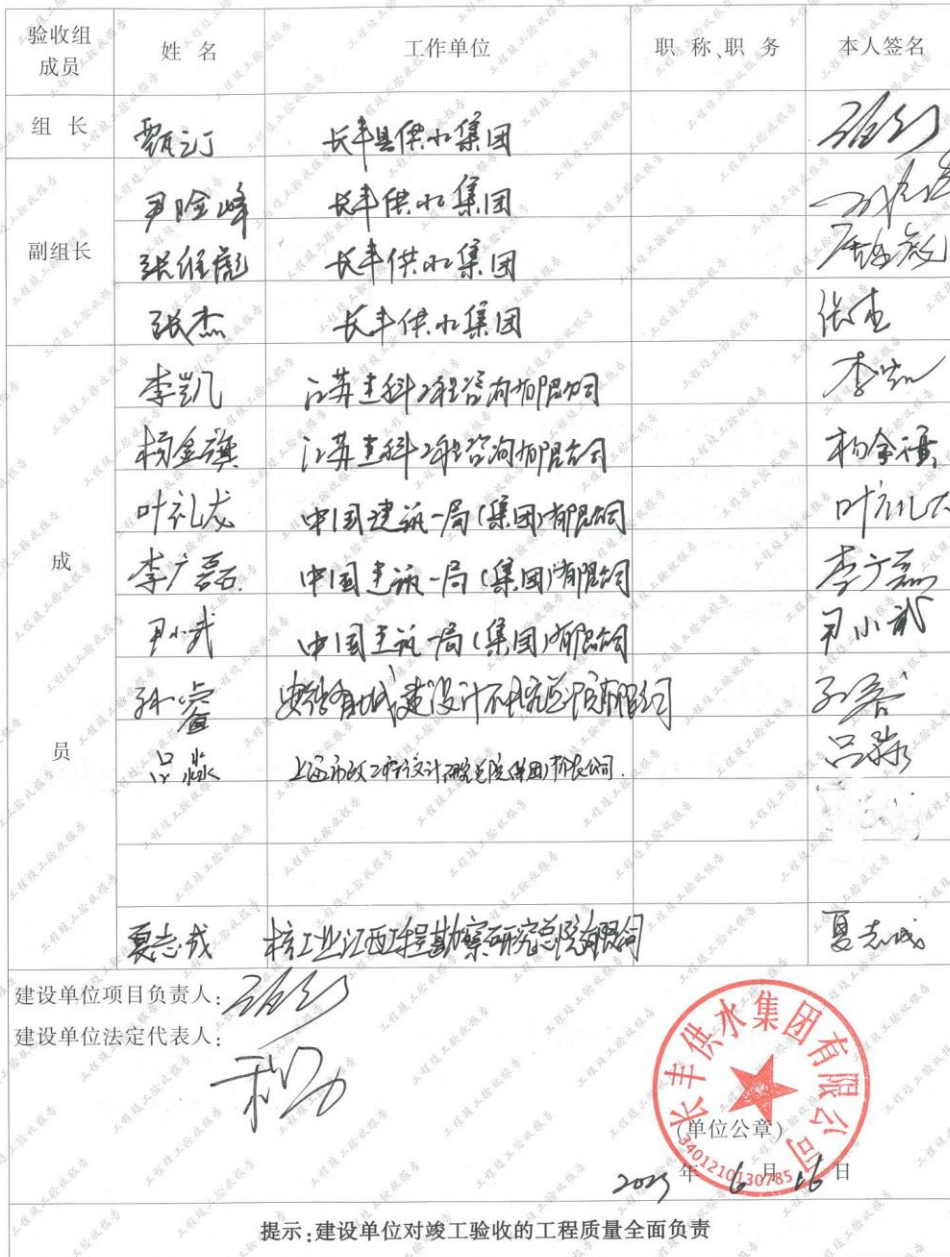 验收组成员 姓 名 工作单位 职 称、职 务 本人签名
组 长 甄汀 长丰县供水集团
副组长 尹险峰 长丰供水集团
张维彪 长丰供水集团
张杰 长丰供水集团 张杰
成员 李凯 江苏建科工程咨询有限公司 李凯
杨金旗 江苏建科工程咨询有限公司 杨金旗
叶礼龙 中国建筑一局(集团)有限公司 叶礼龙
李广磊 中国建筑一局(集团)有限公司 李广磊
尹小武 中国建筑一局(集团)有限公司 尹小武
孙睿 安徽省城建设计研究总院有限公司 孙睿
吕淼 上海市政工程设计研究总院(集团)有限公司 吕淼
夏志成 核工业江西工程勘察研究总院有限公司 夏志成
建设单位项目负责人:
建设单位法定代表人:
长丰供水集团有限公司
(单位公章)
3401210130785
2025 年 6 月 16 日
提示:建设单位对竣工验收的工程质量全面负责
工程竣工验收报告